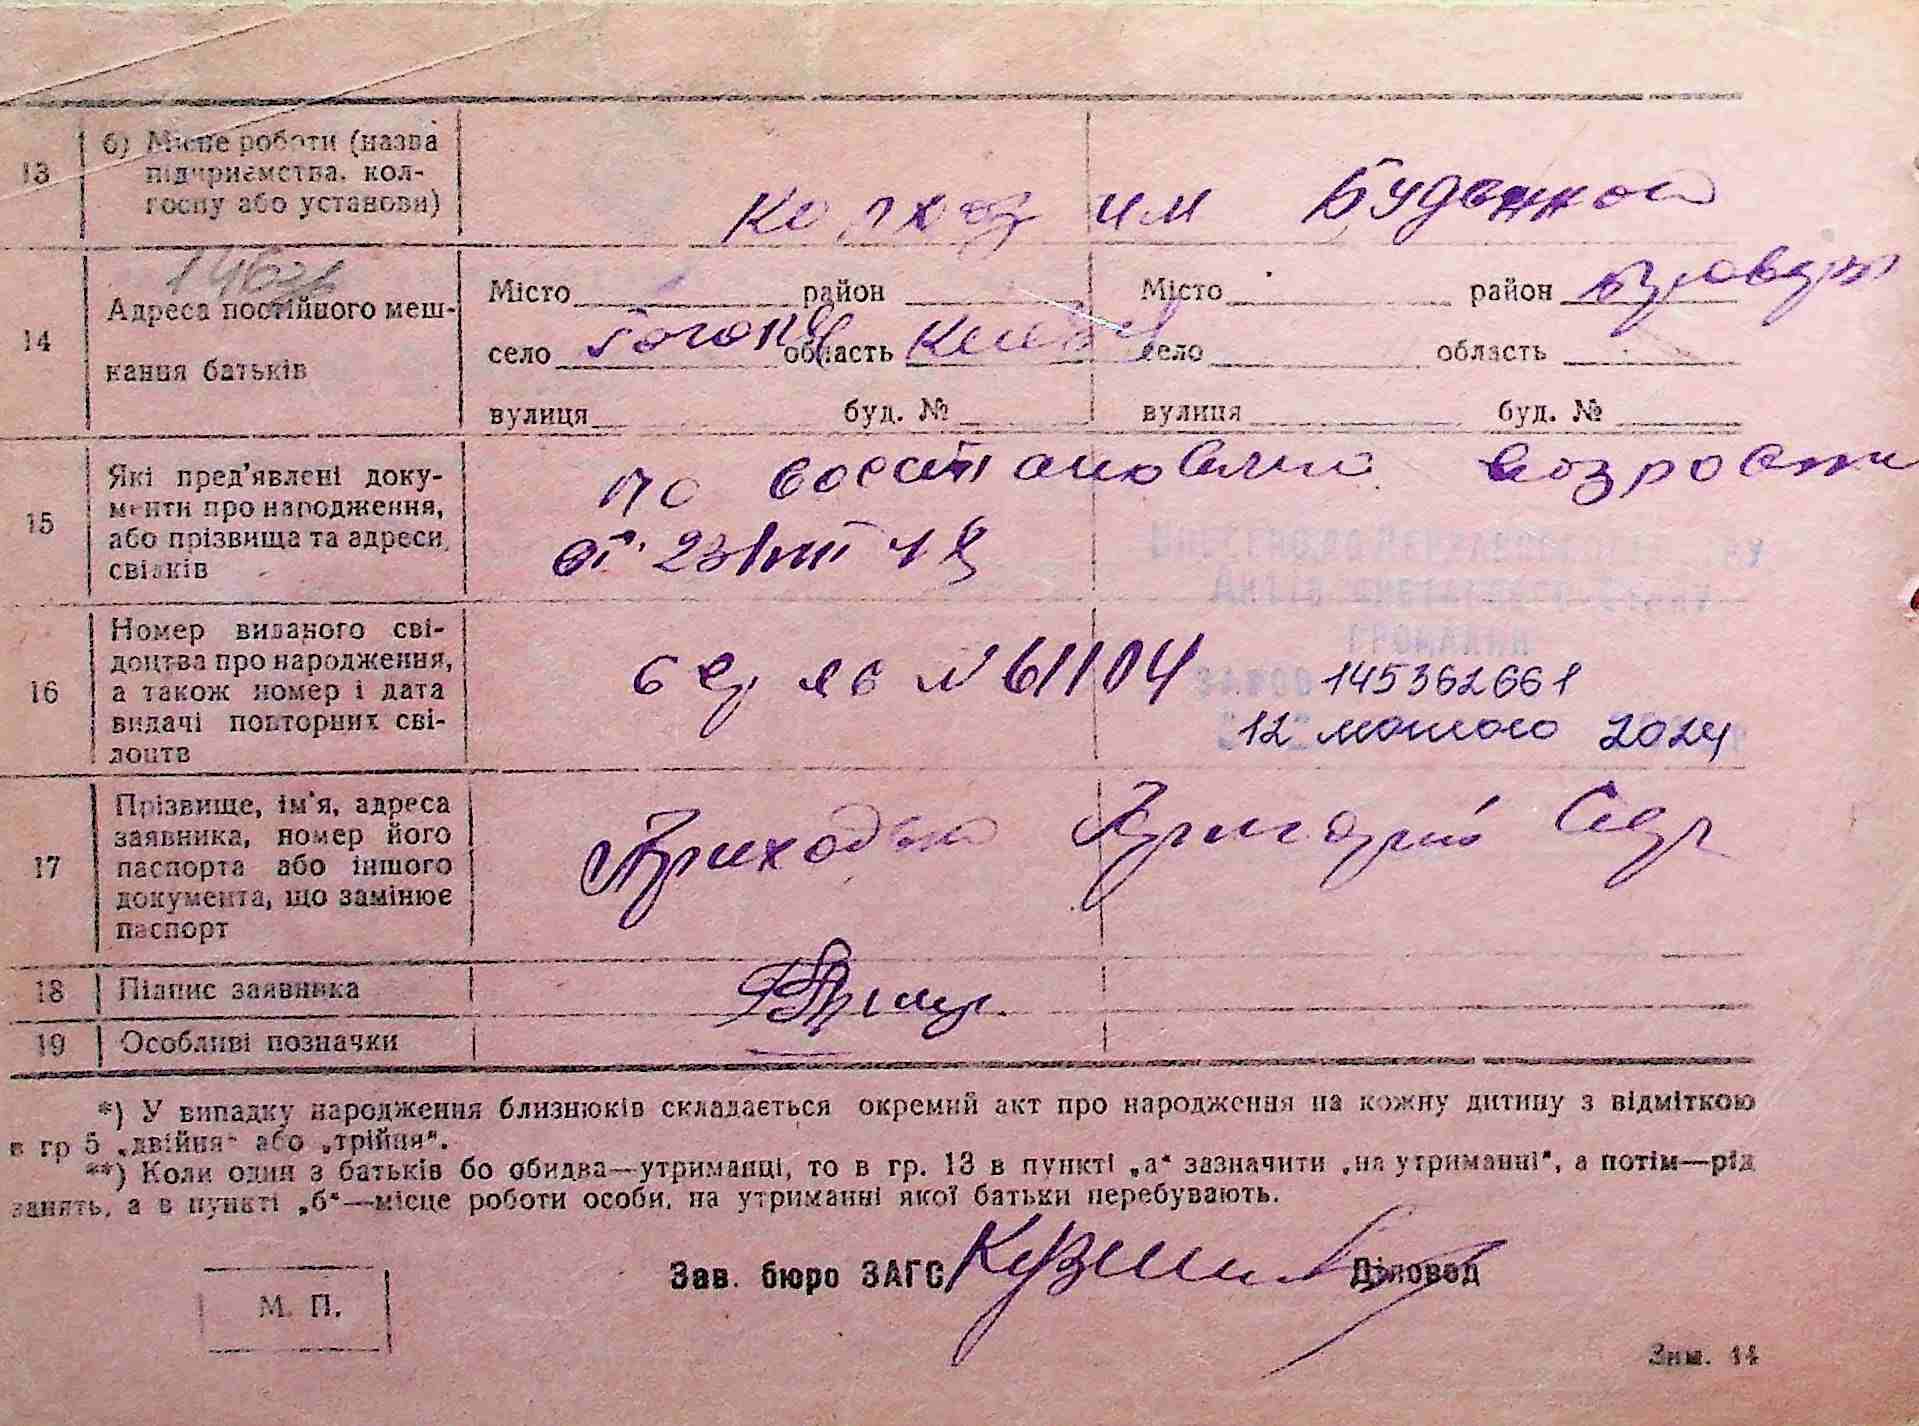 13 б) Місце роботи (назва
підприємства, кол-
госпу або установи)
колхоз им Буденной
14 Адреса постійного меш-
кання батьків
Місто район
село Гоголя область Киевск
вулиця буд. №
Місто район Бровары
село область
вулиця буд. №
15 Які пред'явлені доку-
менти про народження,
або прізвища та адреси
свідків
по восстановлению возроста
от 23/VIII 48
16 Номер виданого сві-
доцтва про народження,
а також номер і дата
видачі повторних сві-
доцтв
№ 61104
145362661
12 лютого 2024
Актів
громадян
17 Прізвище, ім'я, адреса
заявника, номер його
паспорта або іншого
документа, що замінює
паспорт
Приходько Григорий
18 Підпис заявника
19 Особливі позначки
*) У випадку народження близнюків складається окремий акт про народження на кожну дитину з відміткою
в гр 5 „двійня“ або „трійня“.
**) Коли один з батьків бо обидва—утриманці, то в гр. 13 в пункті „а“ зазначити „на утриманні“, а потім—рід
занять, а в пункті „б“—місце роботи особи, на утриманні якої батьки перебувають.
Зав. бюро ЗАГС Діловод
М. П.
Зим. 14